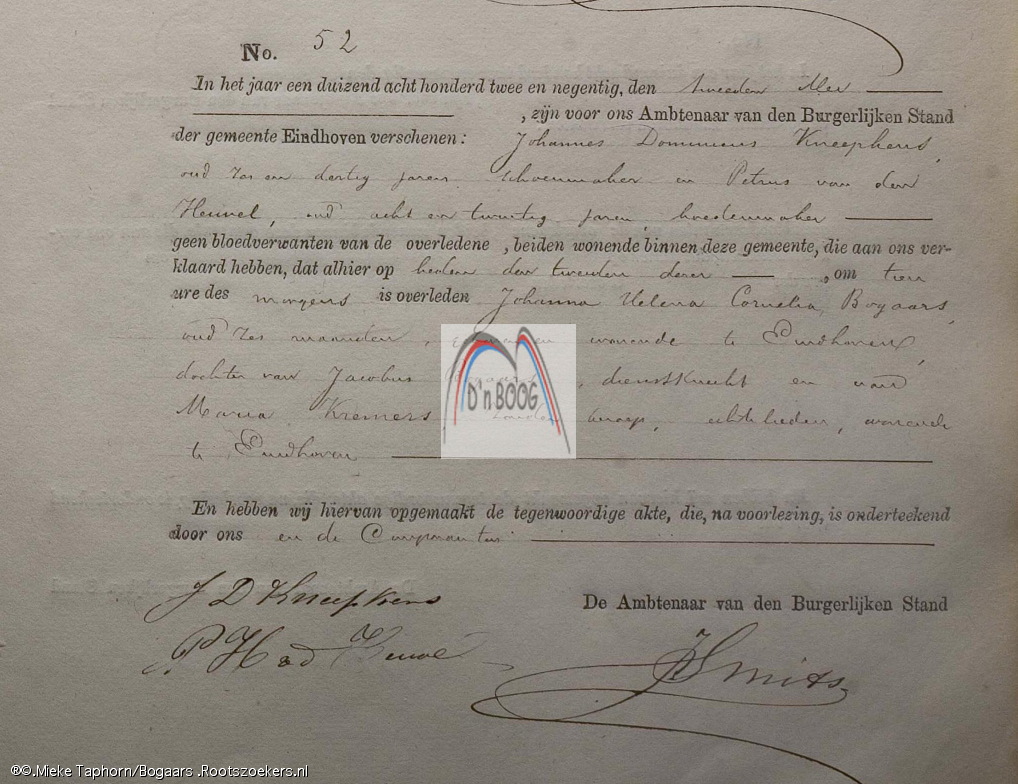 No. 52
In het jaar een duizend acht honderd twee en negentig, den tweeden Mei
, zijn voor ons Ambtenaar van den Burgerlijken Stand
der gemeente Eindhoven verschenen: Johannes Dominicus Kneepkens,
oud zes en dertig jaren, schoenmaker en Petrus van den
Heuvel, oud acht en twintig jaren, hoedenmaker
geen bloedverwanten van de overledene, beiden wonende binnen deze gemeente, die aan ons ver-
klaard hebben, dat alhier op heden den tweeden dezer, om tien
ure des morgens is overleden Johanna Helena Cornelia Bogaars,
oud zes maanden, wonende te Eindhoven,
dochter van Jacobus Bogaars, dienstknecht en van
Maria Kremers, zonder beroep, echtelieden, wonende
te Eindhoven
En hebben wij hiervan opgemaakt de tegenwoordige akte, die, na voorlezing, is onderteekend
door ons en de Comparanten
De Ambtenaar van den Burgerlijken Stand
J D Kneepkens
P. H v d Heuvel
JSmits
D'n BOOG
®©.Mieke Taphorn/Bogaars .Rootszoekers.nl